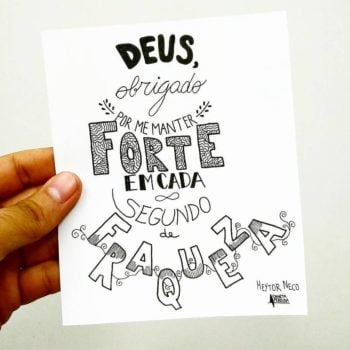 DEUS,
obrigado
POR ME MANTER
FORTE
EM CADA
SEGUNDO
de
FRAQUEZA
HEYTOR NECO